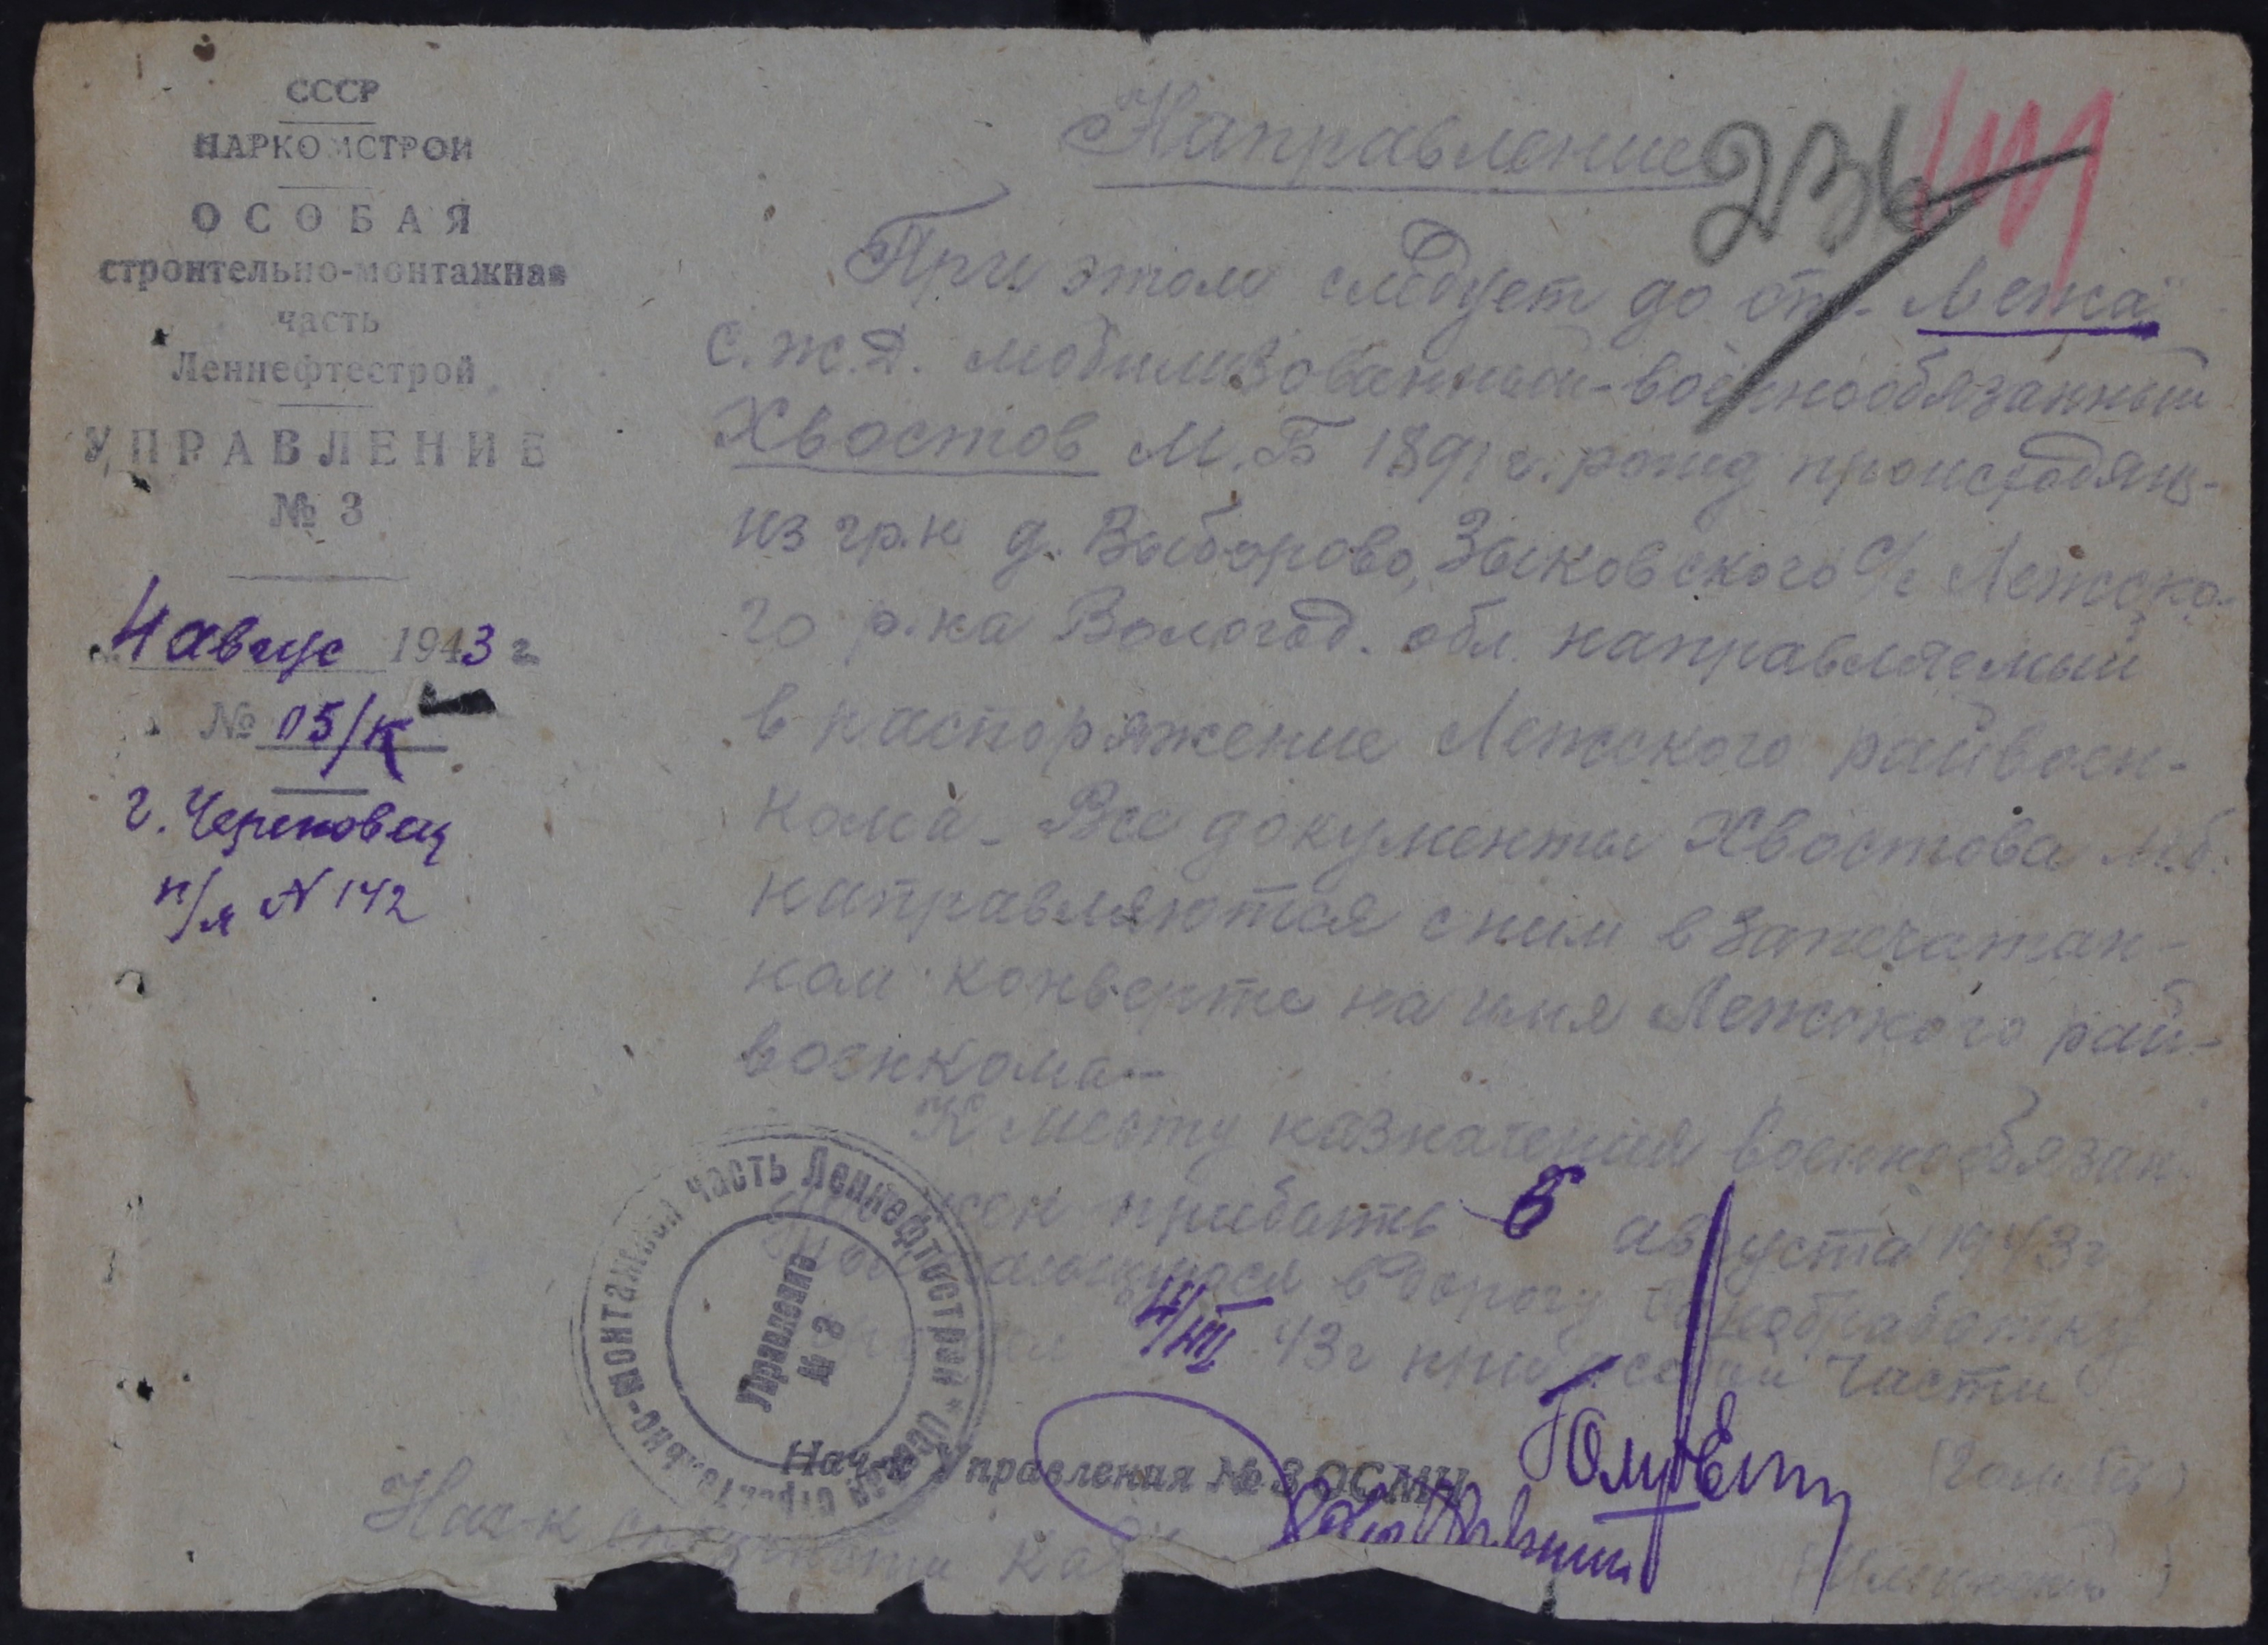 СССР
НАРКОМСТРОЙ
ОСОБАЯ
строительно-монтажная
часть
Леннефтестрой
УПРАВЛЕНИЕ
№ 3
4 авгус 1943 г.
№ 05/к
г. Череповец
п/я N 142
Направление
236
При этом следует до ст. "Лежа"
С.Ж.Д. мобилизованный-военнообязанный
Хвостов М.Б 1891 г. рожд происходящ-
из гр.н д. Выборово, Зыковского с/с Лежско-
го р-на Вологод. обл. направляемый
в распоряжение Лежского райвоен-
кома. Все документы Хвостова М.Б.
направляются с ним в запечатан-
ном конверте на имя Лежского рай-
военкома.-
К месту назначения военнообязан
прибыть 5 августа 1943 г
в дорогу санобработку
4/VIII 43 г при особой части
Нач-к Управления № 3 ОСМЧ
Нач-к
строительно-монтажная часть Леннефтестрой * Особая
Управление
№ 3